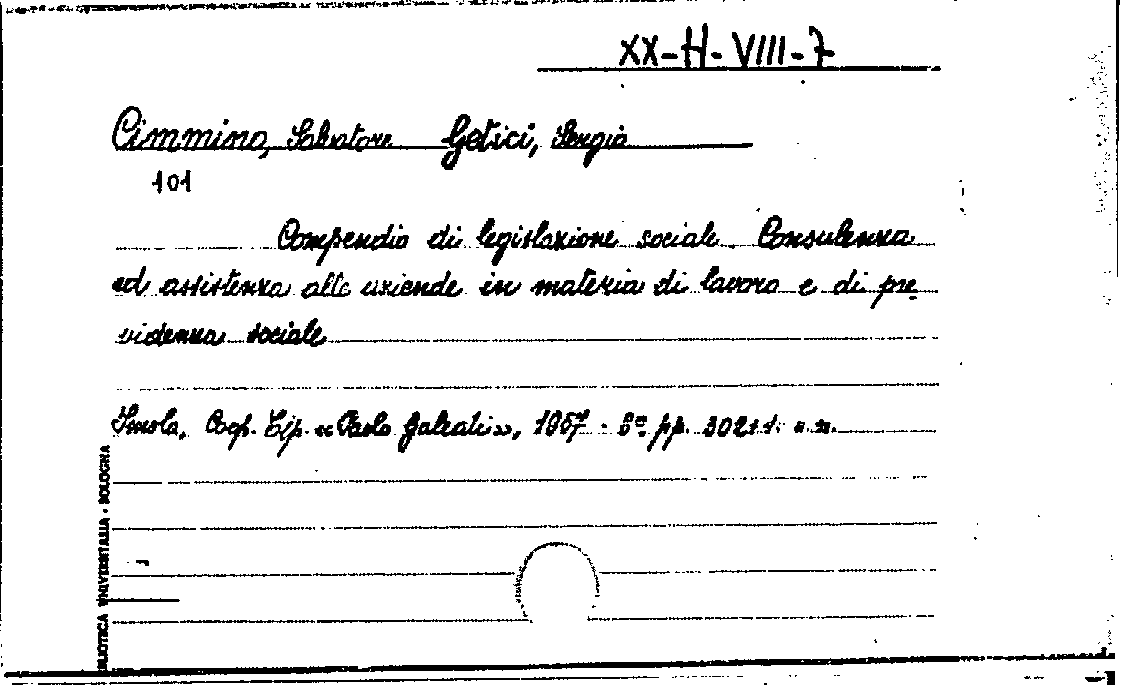 XX-H-VIII-7
Cimmino, Salvatore Getici, Sergio
101
Compendio di legislazione sociale. Consulenza
ed assistenza alle aziende in materia di lavoro e di pre-
videnza sociale
Imola, Coop. Tip. «Paolo Galeati», 1957 - 8º pp. 302+1. n.n.
BIBLIOTECA UNIVERSITARIA - BOLOGNA